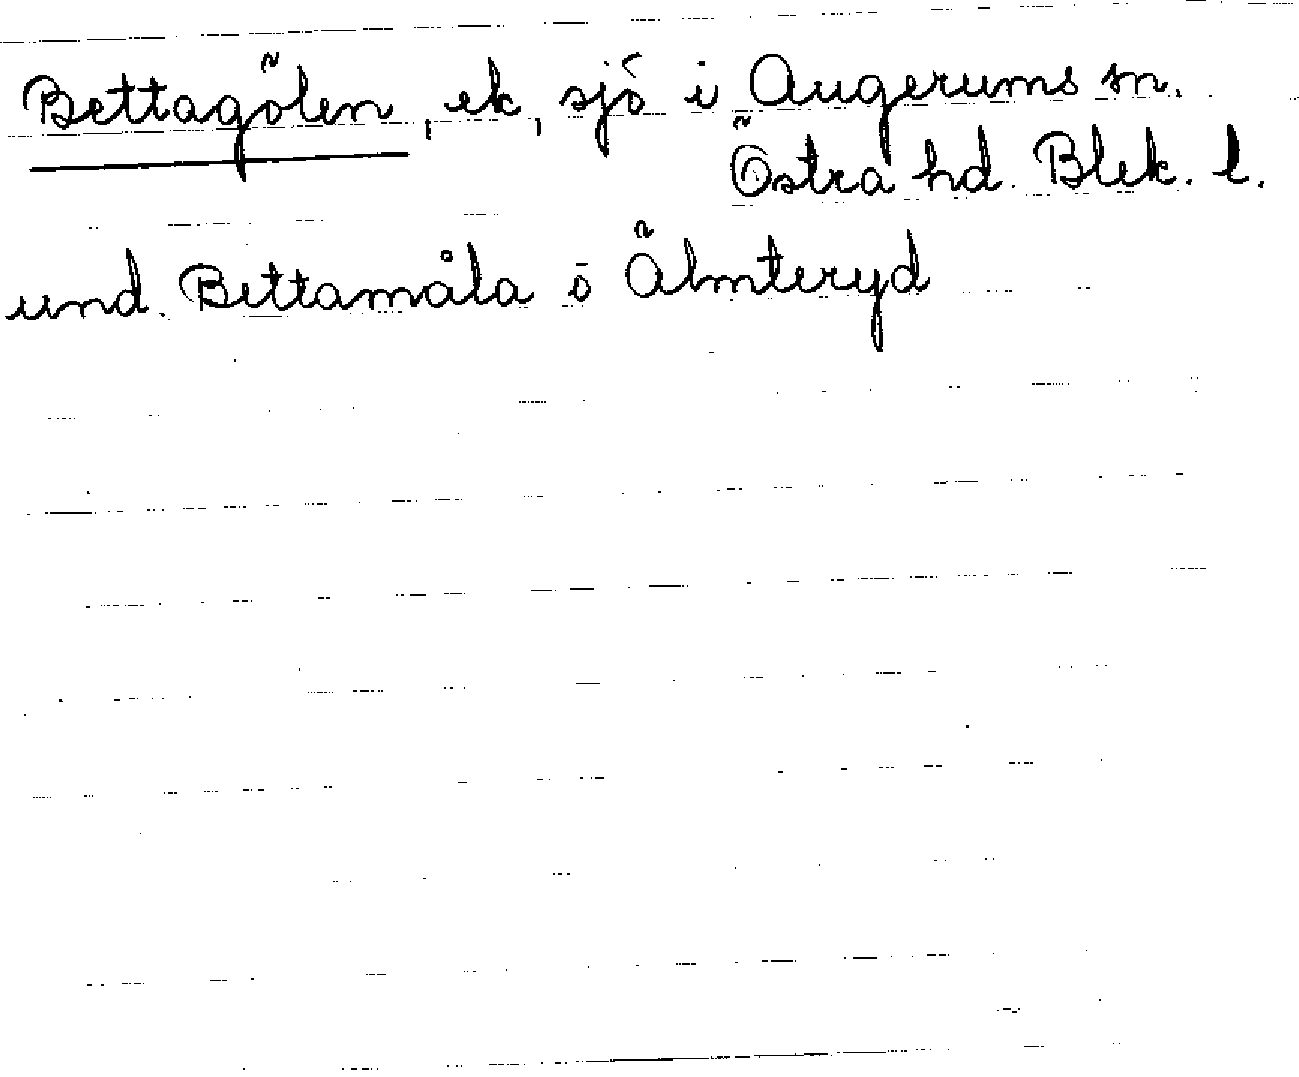 Bettagölen, ek, sjö i Augerums sn.
Östra hd. Blek. l.
und. Bettamåla o Älmteryd